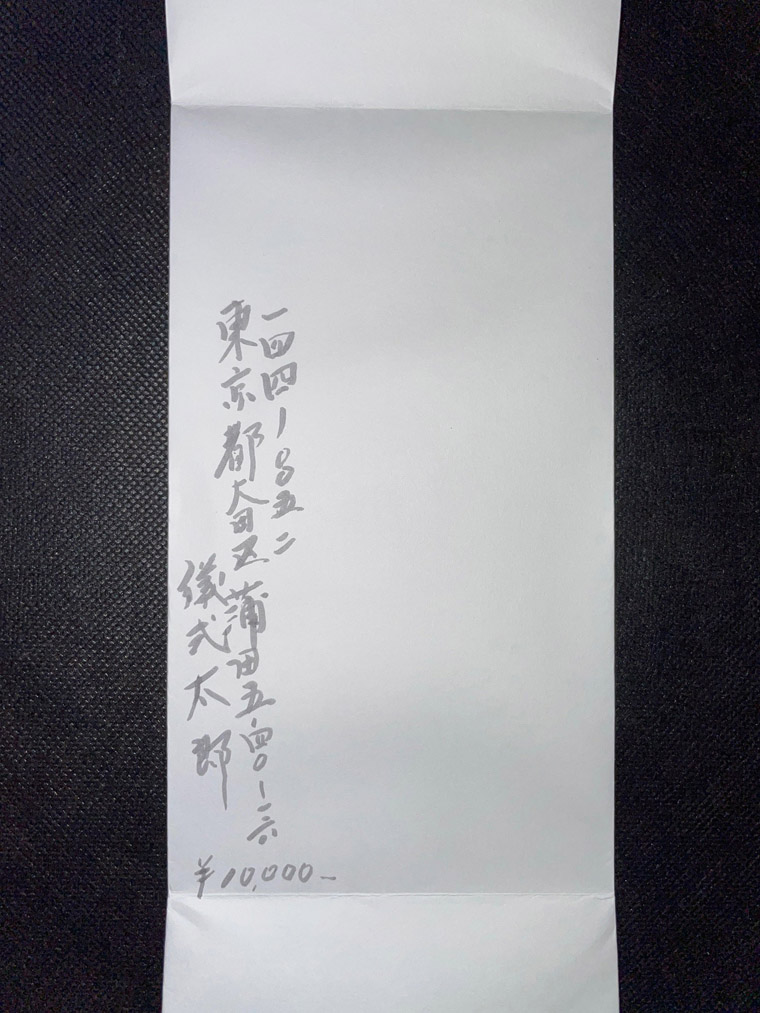 一四四-〇〇五二
東京都大田区蒲田五-四〇-二六
儀式太郎
¥10,000-